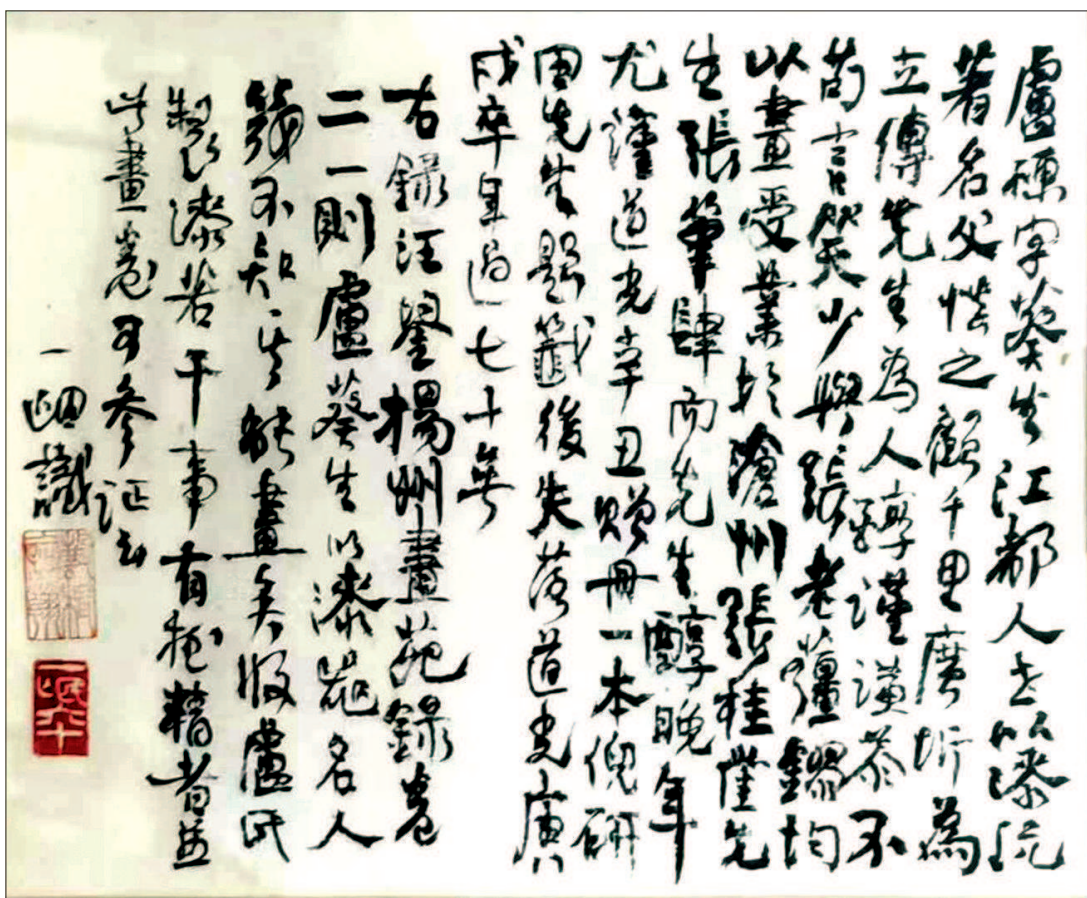 盧棟字葵生江都人世以漆玩
著名父慥之顧千里廣圻為
立傳先生為人醇謹謙恭不
苟言笑少與張老薑鏐均
以畫受業於滄州張桂崖先
生張筆肆而先生醇晚年
尤謹道光辛丑贈冊一本倪研
田先生題籤後失落道光庚
戌卒年過七十無
右錄汪鋆揚州畫苑錄卷
二一則盧葵生以漆器名人
咸不知其能畫矣收盧氏
製漆若干事有極精者並
此畫卷可參証云
一氓識
一氓六十